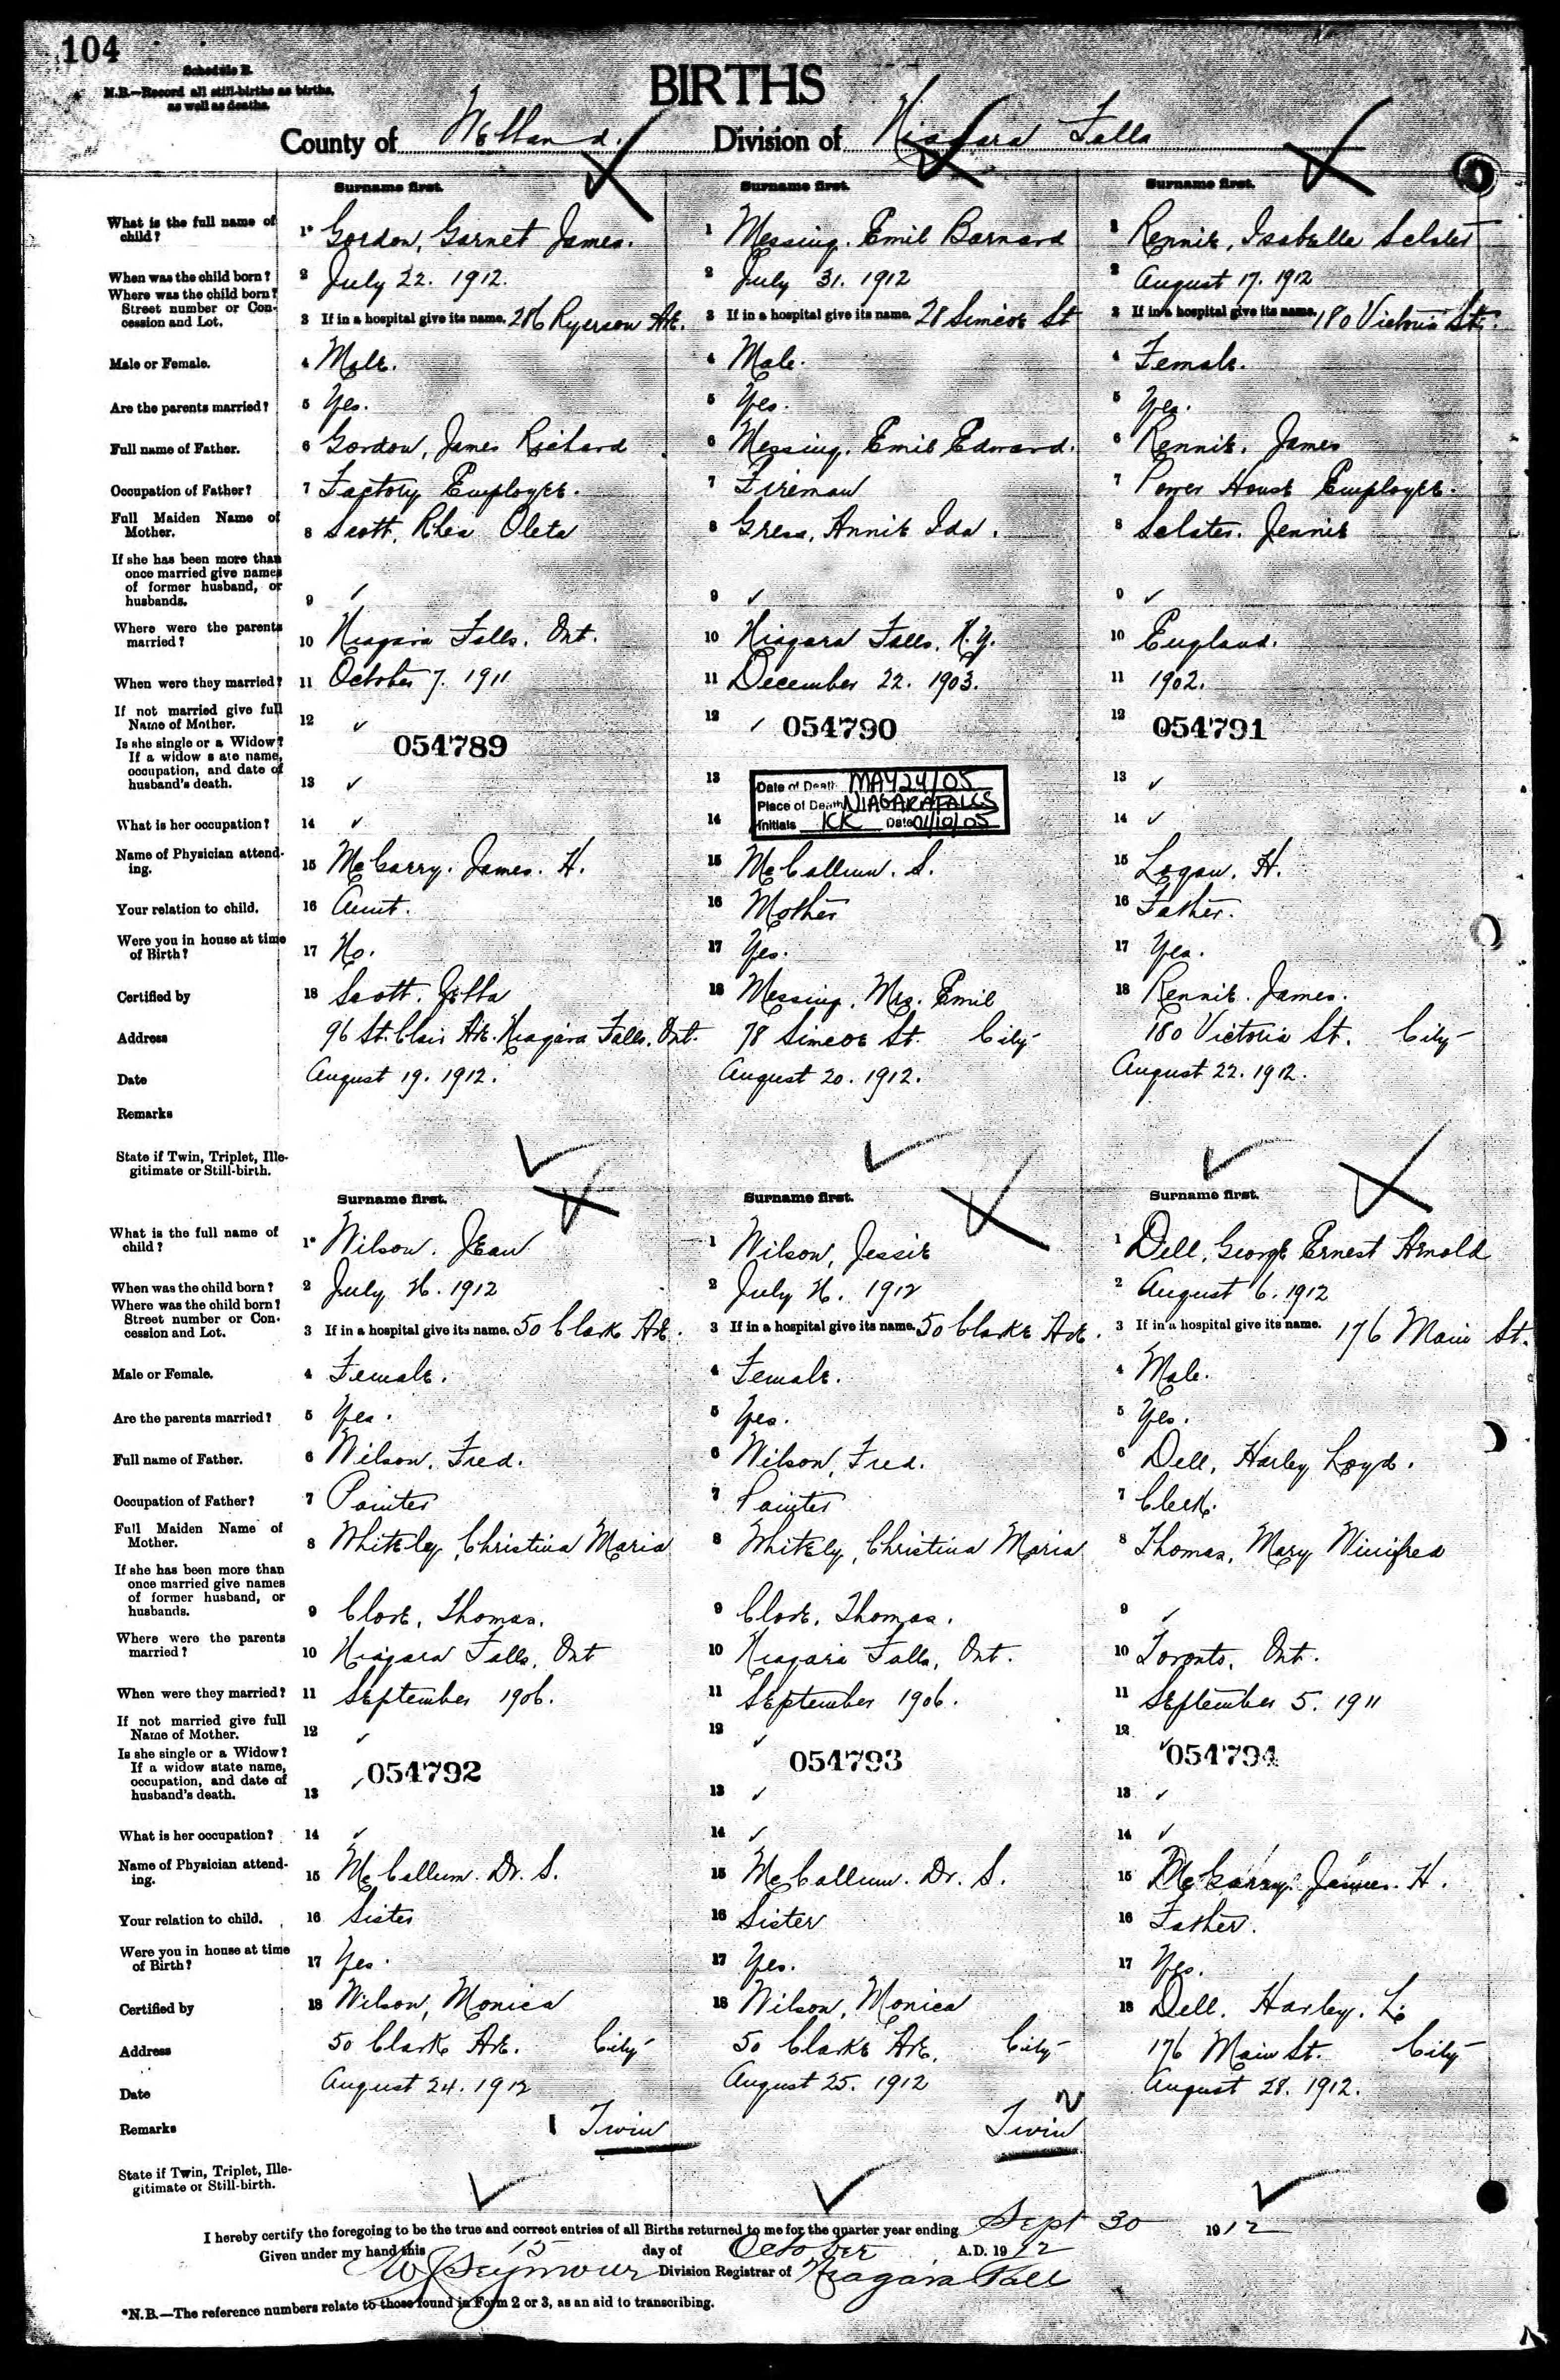 104
Schedule B.
N.B.—Record all still-births as births,
as well as deaths.
BIRTHS
County of Welland. Division of Niagara Falls
Surname first. Surname first. Surname first.
What is the full name of child? 1* Gordon, Garnet James. 1 Messing. Emil Barnard 1 Rennie, Isabelle Selster
When was the child born? 2 July 22. 1912. 2 July 31. 1912 2 August 17. 1912
Where was the child born? Street number or Concession and Lot. 3 If in a hospital give its name. 286 Ryerson Ave. 3 If in a hospital give its name. 28 Simcoe St 3 If in a hospital give its name. 180 Victoria St.
Male or Female. 4 Male. 4 Male. 4 Female.
Are the parents married? 5 Yes. 5 Yes. 5 Yes.
Full name of Father. 6 Gordon, James Richard 6 Messing. Emil Edward. 6 Rennie. James
Occupation of Father? 7 Factory Employee. 7 Fireman 7 Power House Employee.
Full Maiden Name of Mother. 8 Scott, Rhea Oleta 8 Gress, Annie Ida. 8 Selster. Jennie
If she has been more than once married give names of former husband, or husbands. 9 ✓ 9 ✓ 9 ✓
Where were the parents married? 10 Niagara Falls, Ont. 10 Niagara Falls, N.Y. 10 England.
When were they married? 11 October 7. 1911 11 December 22. 1903. 11 1902.
If not married give full Name of Mother. 12 ✓ 12 ✓ 12
054789 054790 054791
Is she single or a Widow? If a widow state name, occupation, and date of husband's death. 13 ✓ 13 13 ✓
Date of Death MAY 24/05
Place of Death NIAGARA FALLS
Initials KK Date 01/10/05
What is her occupation? 14 ✓ 14 14 ✓
Name of Physician attending. 15 McGarry. James. H. 15 McCallum. S. 15 Logan. H.
Your relation to child. 16 Aunt. 16 Mother 16 Father.
Were you in house at time of Birth? 17 No. 17 Yes. 17 Yes.
Certified by 18 Scott. Zetta 18 Messing, Mrs. Emil 18 Rennie. James.
Address 96 St. Clair Ave. Niagara Falls. Ont. 78 Simcoe St. City 180 Victoria St. City
Date August 19. 1912. August 20. 1912. August 22. 1912.
Remarks
State if Twin, Triplet, Illegitimate or Still-birth.
Surname first. Surname first. Surname first.
What is the full name of child? 1* Wilson. Jean 1 Wilson, Jessie 1 Dell, George Ernest Arnold
When was the child born? 2 July 26. 1912 2 July 26. 1912 2 August 6. 1912
Where was the child born? Street number or Concession and Lot. 3 If in a hospital give its name. 50 Clark Ave. 3 If in a hospital give its name. 50 Clarke Ave. 3 If in a hospital give its name. 176 Main St.
Male or Female. 4 Female. 4 Female. 4 Male.
Are the parents married? 5 Yes. 5 Yes. 5 Yes.
Full name of Father. 6 Wilson, Fred. 6 Wilson, Fred. 6 Dell, Harley Loyd.
Occupation of Father? 7 Painter 7 Painter 7 Clerk.
Full Maiden Name of Mother. 8 Whitely, Christina Maria 8 Whitely, Christina Maria 8 Thomas, Mary Winifred
If she has been more than once married give names of former husband, or husbands. 9 Clove, Thomas. 9 Clove, Thomas. 9 ✓
Where were the parents married? 10 Niagara Falls, Ont 10 Niagara Falls, Ont. 10 Toronto, Ont.
When were they married? 11 September 1906. 11 September 1906. 11 September 5. 1911
If not married give full Name of Mother. 12 ✓ 12 ✓ 12 ✓
054792 054793 054794
Is she single or a Widow? If a widow state name, occupation, and date of husband's death. 13 ✓ 13 ✓ 13 ✓
What is her occupation? 14 ✓ 14 ✓ 14 ✓
Name of Physician attending. 15 McCallum. Dr. S. 15 McCallum. Dr. S. 15 McGarry. James. H.
Your relation to child. 16 Sister 16 Sister 16 Father.
Were you in house at time of Birth? 17 Yes. 17 Yes. 17 Yes.
Certified by 18 Wilson, Monica 18 Wilson, Monica 18 Dell. Harley. L.
Address 50 Clark Ave. City 50 Clarke Ave. City 176 Main St. City
Date August 24. 1912 August 25. 1912 August 28. 1912.
Remarks 1 Twin 2 Twin
State if Twin, Triplet, Illegitimate or Still-birth.
I hereby certify the foregoing to be the true and correct entries of all Births returned to me for the quarter year ending Sept 30 1912
Given under my hand this 15 day of October A.D. 1912
W J Seymour Division Registrar of Niagara Fall
*N.B.—The reference numbers relate to those found in Form 2 or 3, as an aid to transcribing.